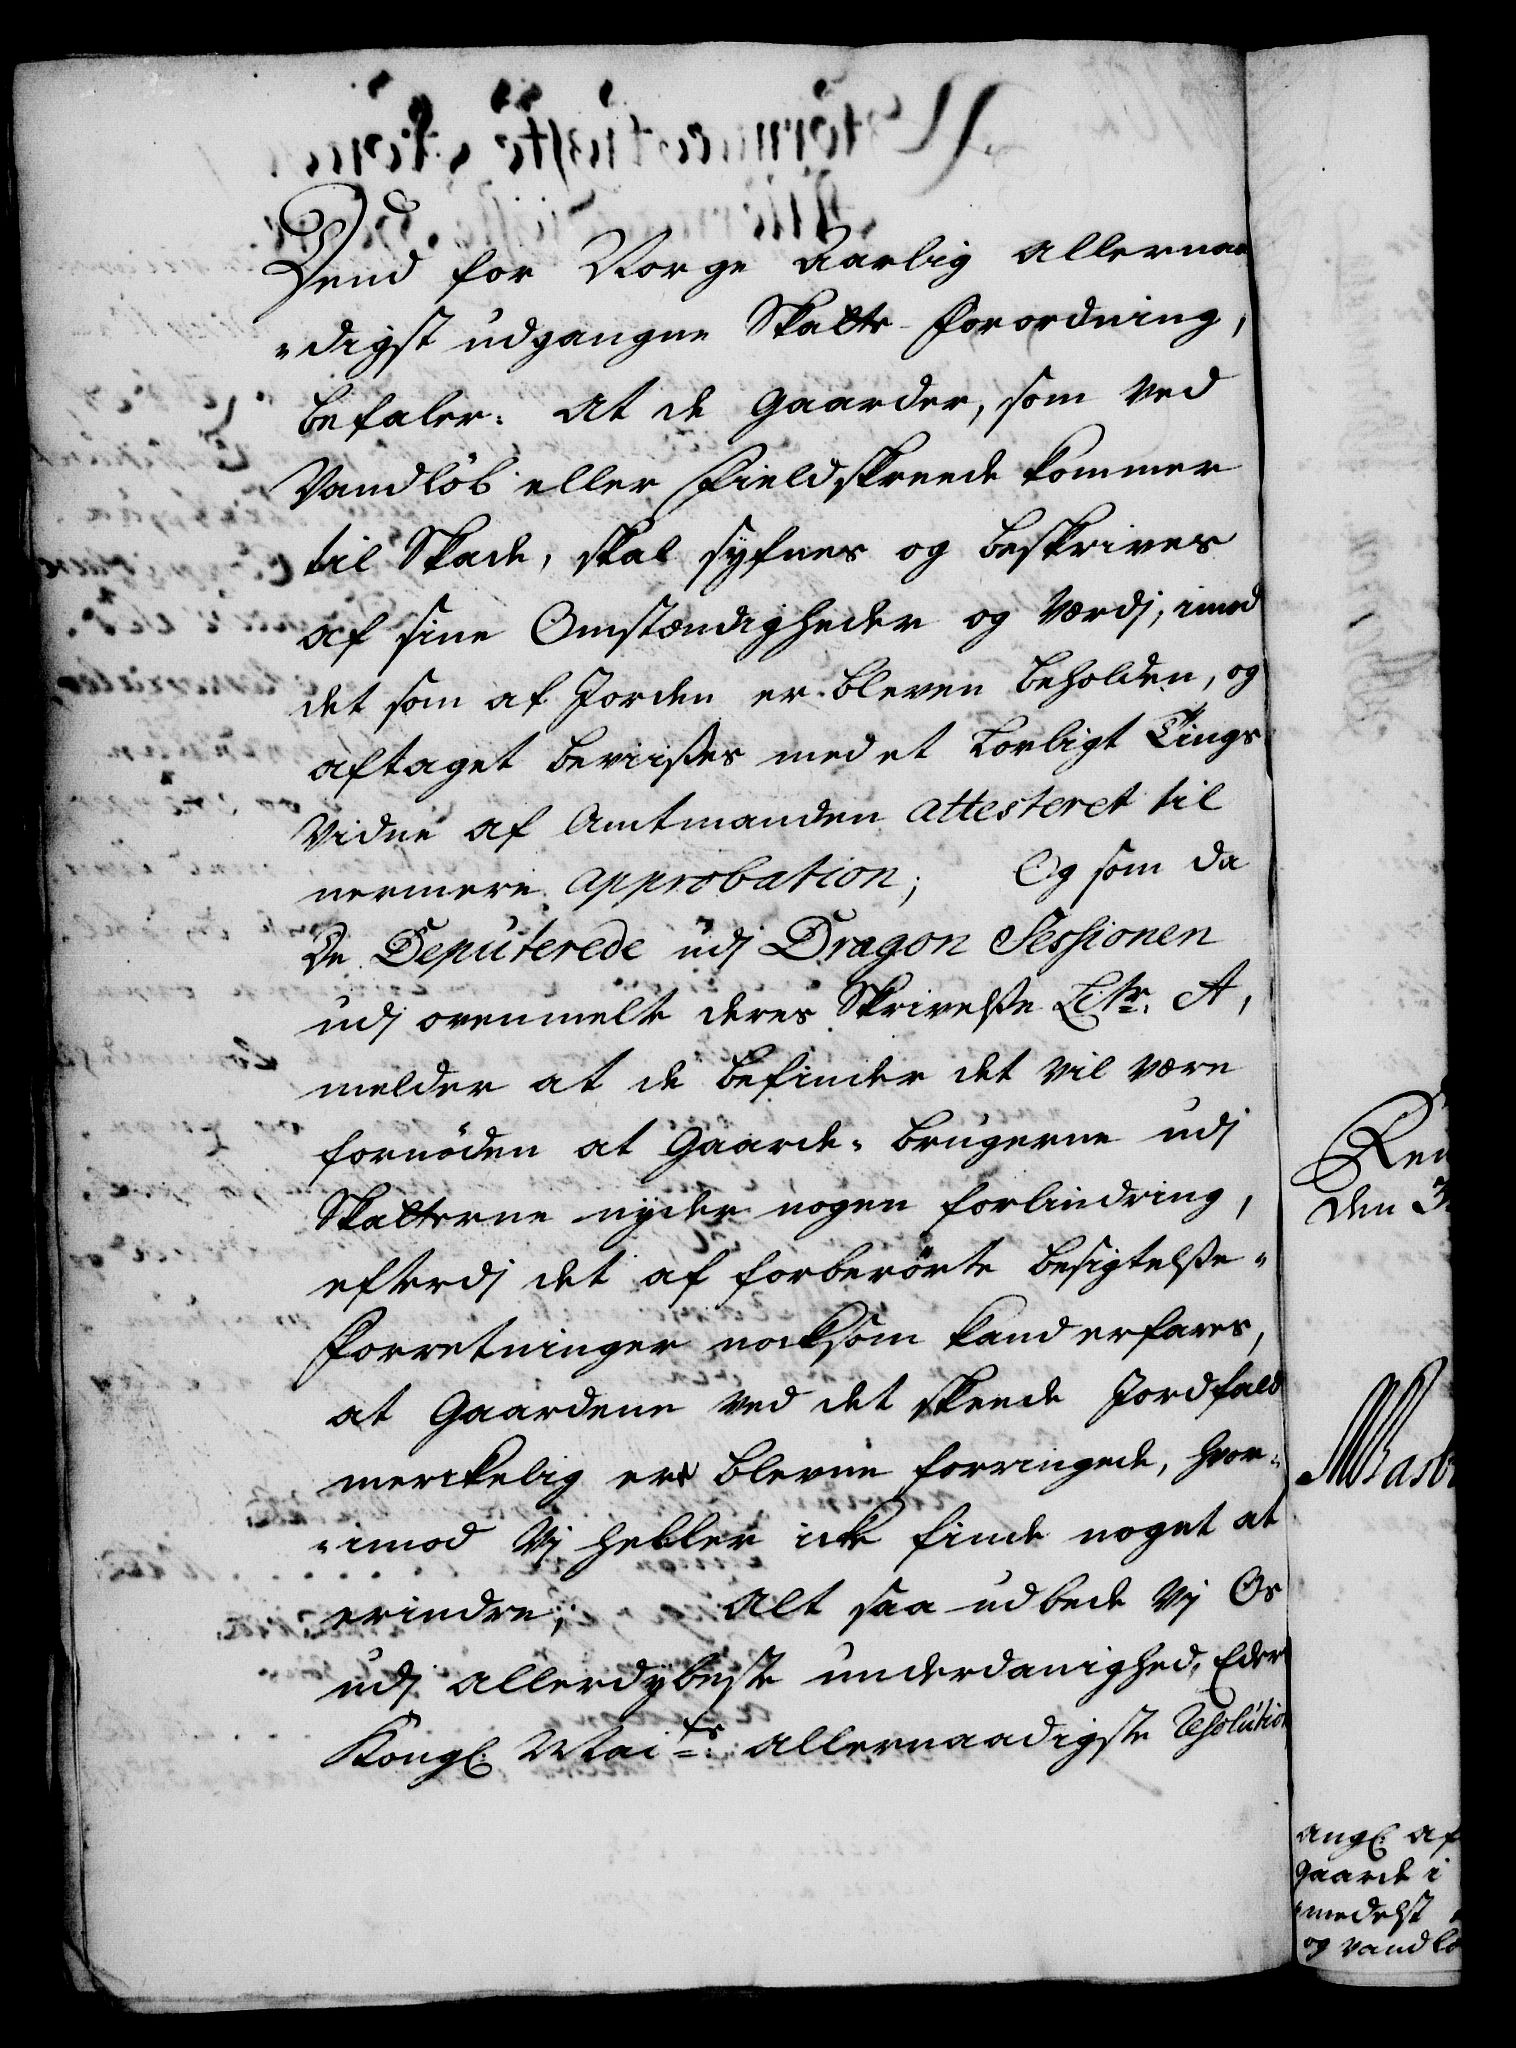 Dend for Norge aarlig allernaa
-digst udgangne Skatte-Forordning,
befaler: At de Gaarder, som ved
Vandløb eller Fieldskreede kommer
til Skade, skal syfnes og beskrives
af sine Omstændigheder og Værdj, imod
det som af Jorden er bleven beholden, og
aftaget beviises med et Lovligt Tings
Vidne af Amtmanden attesteret til
nermere approbation; Og som da
De Deputerede udj Dragon Sessionen
udj ovenmelte deres Skrivelse Litr. A,
melder at de befinder det vil være
fornøden at Gaarde-brugerne udj
Skatterne nyder nogen forlindring,
efterdj det af forberørte besigtelse-
Forretninger noksom kand erfares,
at Gaardene ved det skeede Jordfald
merckelig ere blevne forringede, hvor-
-imod Vj heller icke finde noget at
erindre; Alt saa udbede Vj Os
udj allerdybeste underdanighed, Eders
Kongl. Mai.ts allernaadigste Resolution
Ren
den 3
angl. af
Gaarde i
-medelst
og Vandlø